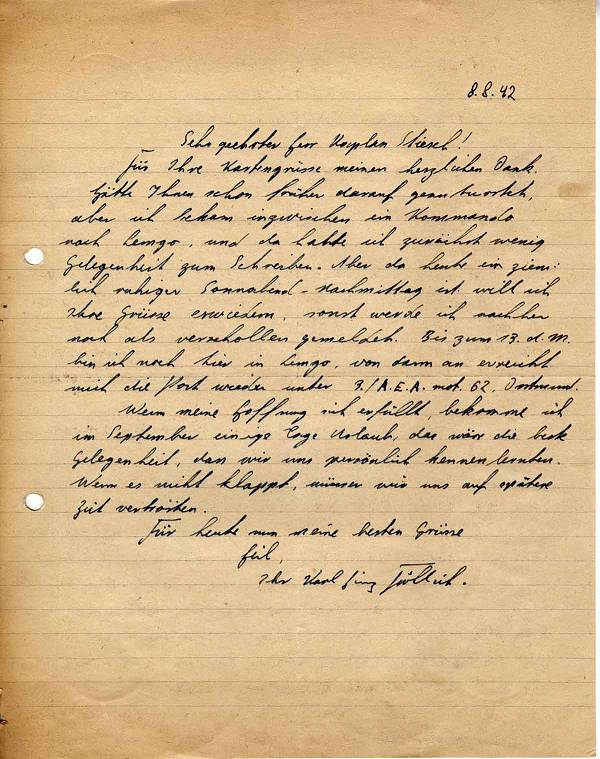 8.8.42
Sehr geehrter Herr Kaplan Stiesch!
Für Ihre Kartengrüsse meinen herzlichen Dank.
Hätte Ihnen schon früher darauf geantwortet,
aber ich bekam inzwischen ein Kommando
nach Lemgo, und da hatte ich zunächst wenig
Gelegenheit zum Schreiben. Aber da heute ein ziem-
lich ruhiger Sonnabend-Nachmittag ist will ich
Ihre Grüsse erwiedern, sonst werde ich nachher
noch als verschollen gemeldet. Bis zum 13. d. M.
bin ich noch hier in Lemgo, von dann an erreicht
mich die Post wieder unter 3./A.E.A. mot. 62, Dortmund.
Wenn meine Hoffnung sich erfüllt, bekomme ich
im September einige Tage Urlaub, das wär die beste
Gelegenheit, dass wir uns persönlich kennenlernten.
Wenn es nicht klappt, müssen wir uns auf spätere
Zeit vertrösten.
Für heute nun meine besten Grüsse
Heil,
Ihr Karl